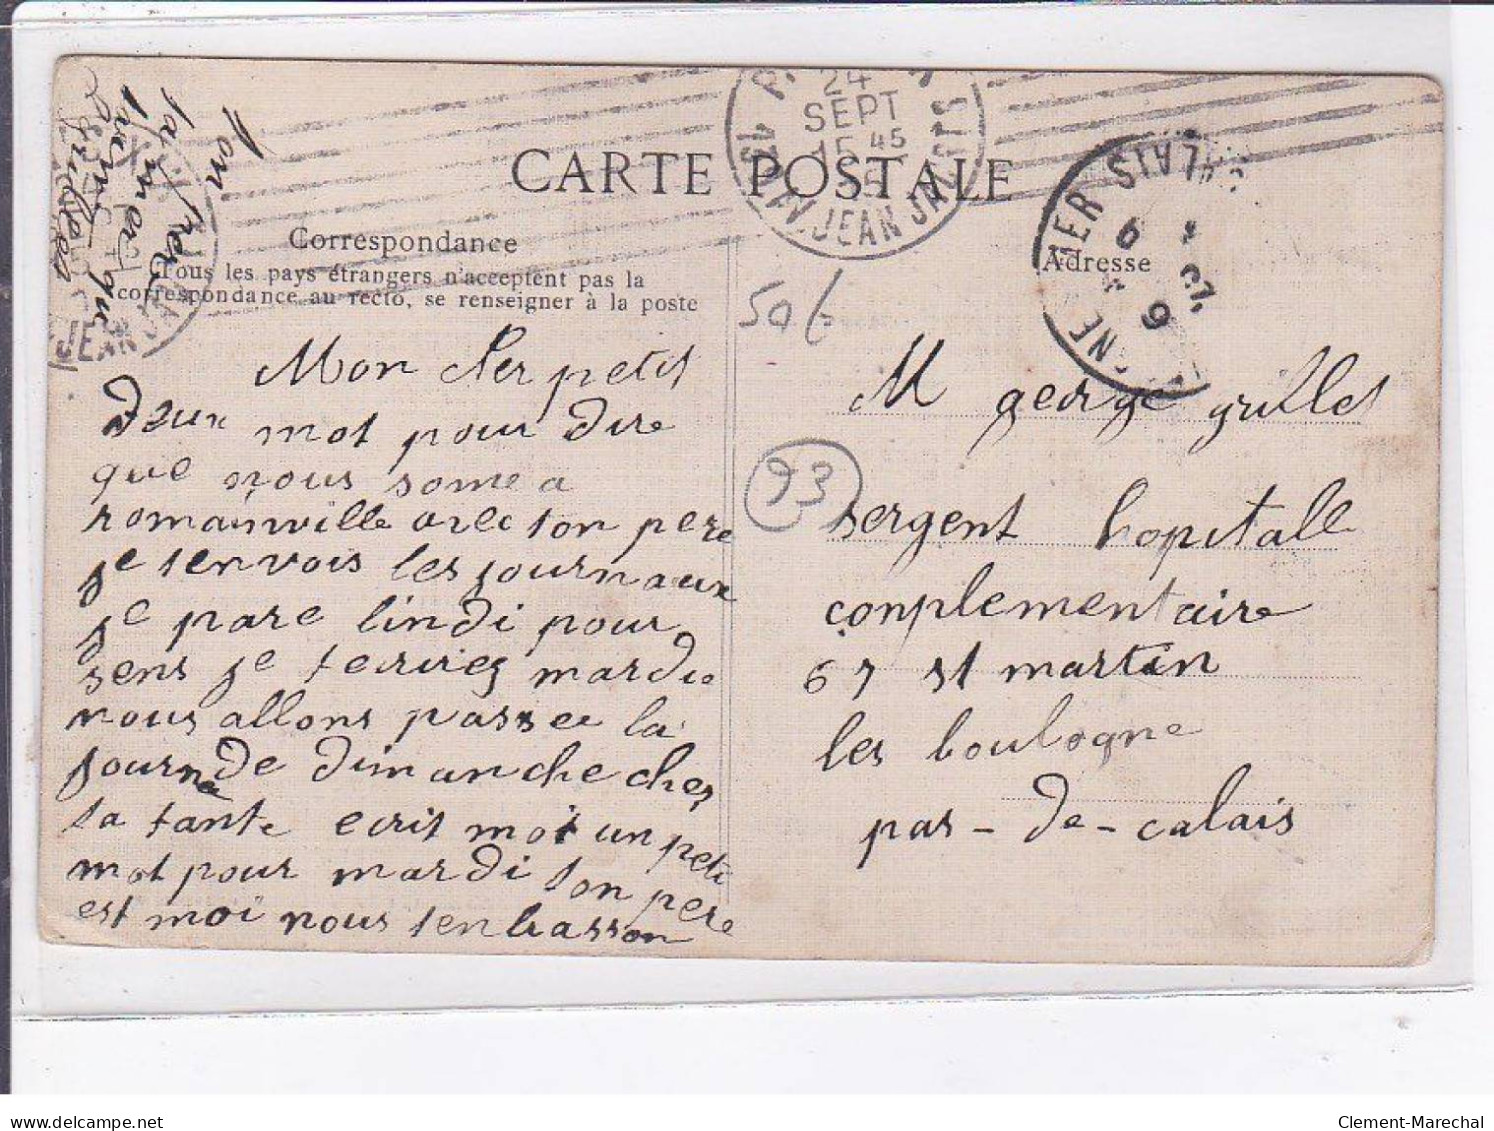 CARTE POSTALE
Correspondance
Tous les pays étrangers n'acceptent pas la
correspondance au recto, se renseigner à la poste
Adresse
24
SEPT
15 45
15
AV. JEAN JAURÈS
MER
6
9
JEAN
50f
93
Mon cher petit
deux mot pour dire
que nous some a
romainville avec ton pere
je tenvois les journaux
je pare lindi pour
sens je tecrirez mardi
nous allons passee la
journe de dimanche ches
ta tante ecrit moi un petit
mot pour mardi ton pere
est moi nous tenbrasson
ton pere
ta mere
qui
M george grillet
sergent hopitall
conplementaire
67 st martin
les boulogne
pas-de-calais
delcampe.net
Clement-Marechal